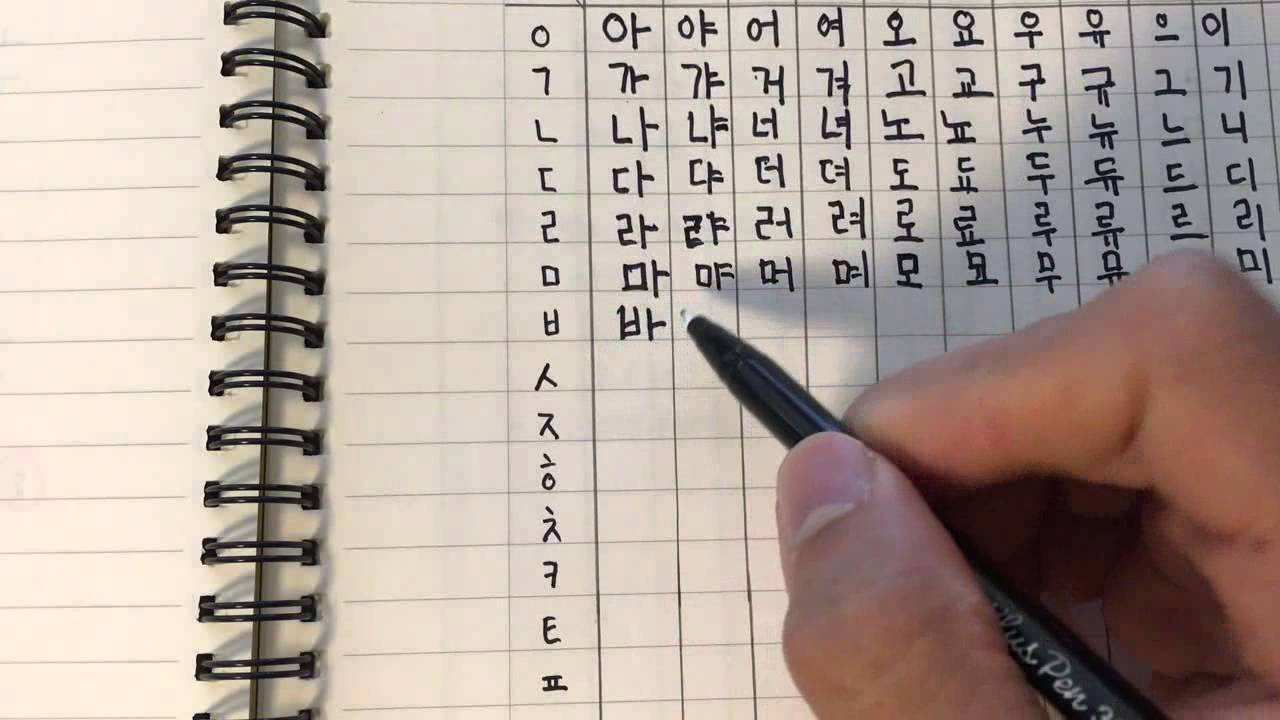 ㅇ 아 야 어 여 오 요 우 유 으 이
ㄱ 가 갸 거 겨 고 교 구 규 그 기
ㄴ 나 냐 너 녀 노 뇨 누 뉴 느 니
ㄷ 다 댜 더 뎌 도 됴 두 듀 드 디
ㄹ 라 랴 러 려 로 료 루 류 르 리
ㅁ 마 먀 머 며 모 묘 무 뮤 미
ㅂ 바
ㅅ
ㅈ
ㅎ
ㅊ
ㅋ
ㅌ
ㅍ
Plus Pen 3